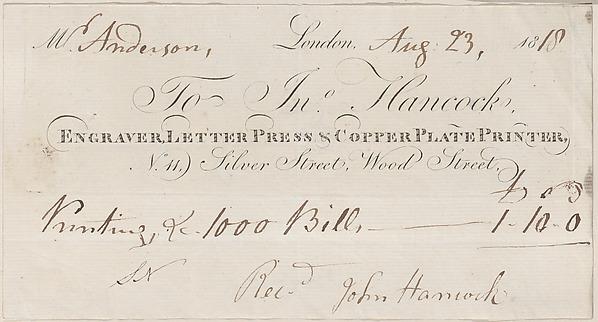 Mr. Anderson, London, Aug 23, 1818
To Jno. Hancock,
ENGRAVER, LETTER PRESS & COPPER PLATE PRINTER,
N. 11, Silver Street, Wood Street.
Printing, &c. 1000 Bills 1-10-0
Recd. John Hancock